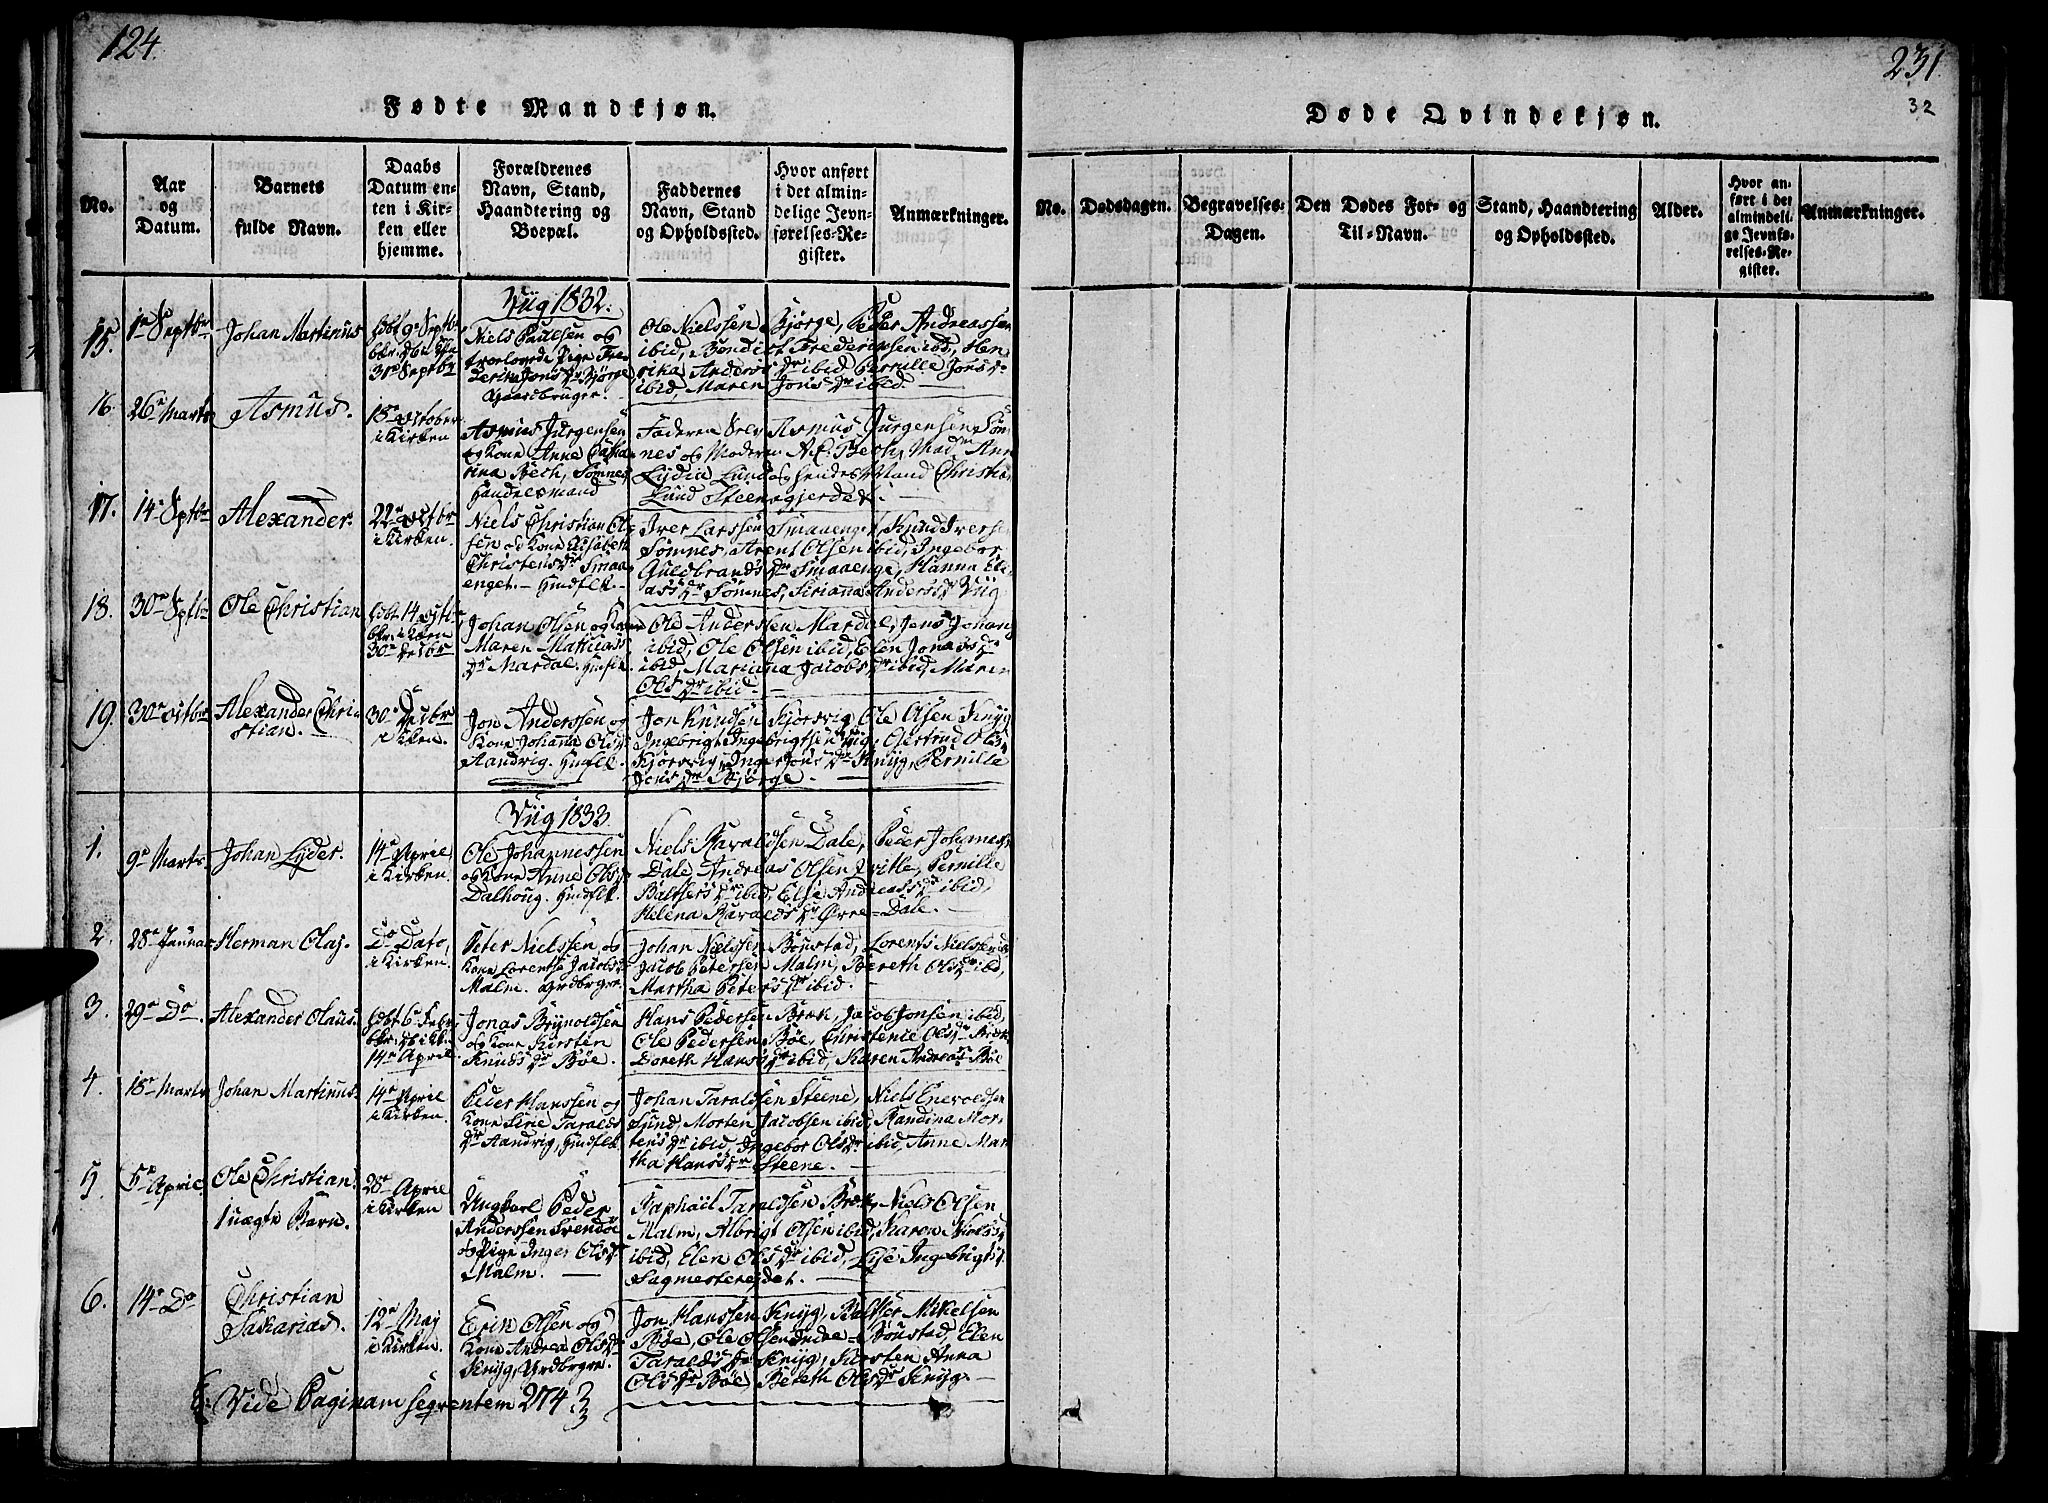 124.
Fødte Mandkjøn.
No.
Aar
og
Datum.
Barnets
fulde Navn.
Daabs
Datum en-
ten i Kir-
ken eller
hjemme.
Forældrenes
Navn, Stand,
Haandtering og
Boepæl.
Faddernes
Navn, Stand
og Opholdssted.
Hvor anført
i det almin-
delige Jevn-
førelses-Re-
gister.
Anmærkninger.
Viig 1832.
15.
1e Septbr
Johan Martinus
Niels Paulsen og
Jons Dr Bjørge
Gaardbruger.
Ole Nielssen Bjørge, Peder Andreassen
ibid, Bendict Frederiksen ibd, Hen-
rika Anders Dr ibid Pernille Jons Dr
ibid, Maren Jons Dr ibid
16.
26e Marts
Asmus.
18e October
i Kirken
Asmus Jürgensen
og Kone Anne Catha-
rina Bech, Sømnes
Handelsmand
Faderen selv Asmus Jürgensen Søm-
nes og Moderen A. C. Bech, Mad. Ann
Lydia Lund og hendes Mand Christian
Lund Steensgjerdet.
17.
14e Sptbr
Alexander.
22e Octbr
i Kirken.
Niels Christian Ol-
sen og Kone Elisabeth
Christens Dr Smaa-
enget. Huusflk.
Iver Larssen Smaaenget, Knud Iverse
Sømnes, Arent Olsen ibid, Ingebor
Guldbrands Dr Smaaenge, Hanna Eli-
ass Dr Sømnes, Siriana Anders Dr Viig
18.
30e Sptbr
Ole Christian
30e Decbr
Johan Olsen og Kone
Maren Mathiass
Dr Mardal. Huusflk
Ole Anderssen Mardal, Jens Johan
ibid, Ole Olsen ibid, Elen Jonass Dr
ibid, Mariana Jacobs Dr ibid, Maren
Ols Dr ibid.
19.
30e Octbr
Alexander Chri-
stian.
30e Decbr
i Kken.
Jon Anderssen og
Kone Johana Ols Dr
Aandvig. Huusflk.
Jon Knudsen Kjørsvig Ole Olsen Knyg
Ingebrigt Ingebrigtsen Viig, Gjertrud Ols Dr
Kjørsvig, Inger Jons Dr Knyg, Pernille
Jons Dr Bjørge.
Viig 1833.
1.
9e Marts
Johan Lyder.
14e April
i Kirken.
Ole Johannessen
og Kone Anne Ols Dr
Dalhoug. Huusflk.
Niels Haraldsen Dale, Peder Johannes
Dale, Andreas Olsen Tville, Pernille
Baltsers Dr ibid, Else Andreass Dr ibid,
Helena Haralds Dr Øvre-Dale.
2.
28e Januar
Herman Olaj.
Do Dato,
i Kirken.
Peter Nielssen og
Kone Lorentse Jacobs Dr
Malm. Grdbrgre.
Johan Nielssen Bøjestad, Lorents Nielssen
Jacob Petersen Malm, Bereth Ols Dr ibid,
Martha Peters Dr ibid.
3.
29e Do.
Alexander Olaus.
14e April
Jonas Brynoldsen
og Kone Kirsten
Knuds Dr Bøe.
Hans Pedersen Bræk, Jacob Jonsen ibid,
Ole Pedersen Bøe, Christence Ols Dr Bræk
Doreth Hans Dr ibid, Karen Andreas Dr Bøe
4.
18e Marts
Johan Martinus.
14e April
i Kirken
Peder Hanssen og
Kone Sirie Taralds
Dr Aandvig, Huusflk.
Johan Taraldsen Steene, Niels Enevoldsen
Sund, Morten Jacobsen ibid, Randina Mor-
tens Dr ibid, Ingebor Ols Dr ibid, Anne Mar-
tha Hans Dr Steene.
5.
5e April.
Ole Christian.
Uægte Barn.
28e April
i Kirken
Ungkarl Peder
Anderssen Svendøe
og Pige Inger Ols Dr
Malm.
Raphael Taraldsen Bræk, Niels Olsen
Malm, Albrigt Olsen ibid, Karen Niels Dr
ibid, Elen Ols Dr ibid, Lise Ingebrigts Dr
Sagmestereidet.
6.
14e Do
Christian
Sakarias.
12e Maj
i Kirken.
Erik Olsen og
Kone Andrea Ols Dr
Knyg, Grdbrgre.
Jon Hanssen Knyg, Baltser Mikelsen
Bøe, Ole Olsen Indre-Bøustad, Elen
Taralds Dr Knyg, Kirsten Anna
Ols Dr Bøe Bereth Ols Dr Knyg.
Vide Paginam seqventem 274
231
32
Døde Qvindekjøn.
No.
Dødsdagen.
Begravelses-
Dagen.
Den Dødes For- og
Til-Navn.
Stand, Haandtering
og Opholdssted.
Alder.
Hvor an-
ført i det
almindeli-
ge Jevnfø-
relses-Re-
gister.
Anmærkninger.